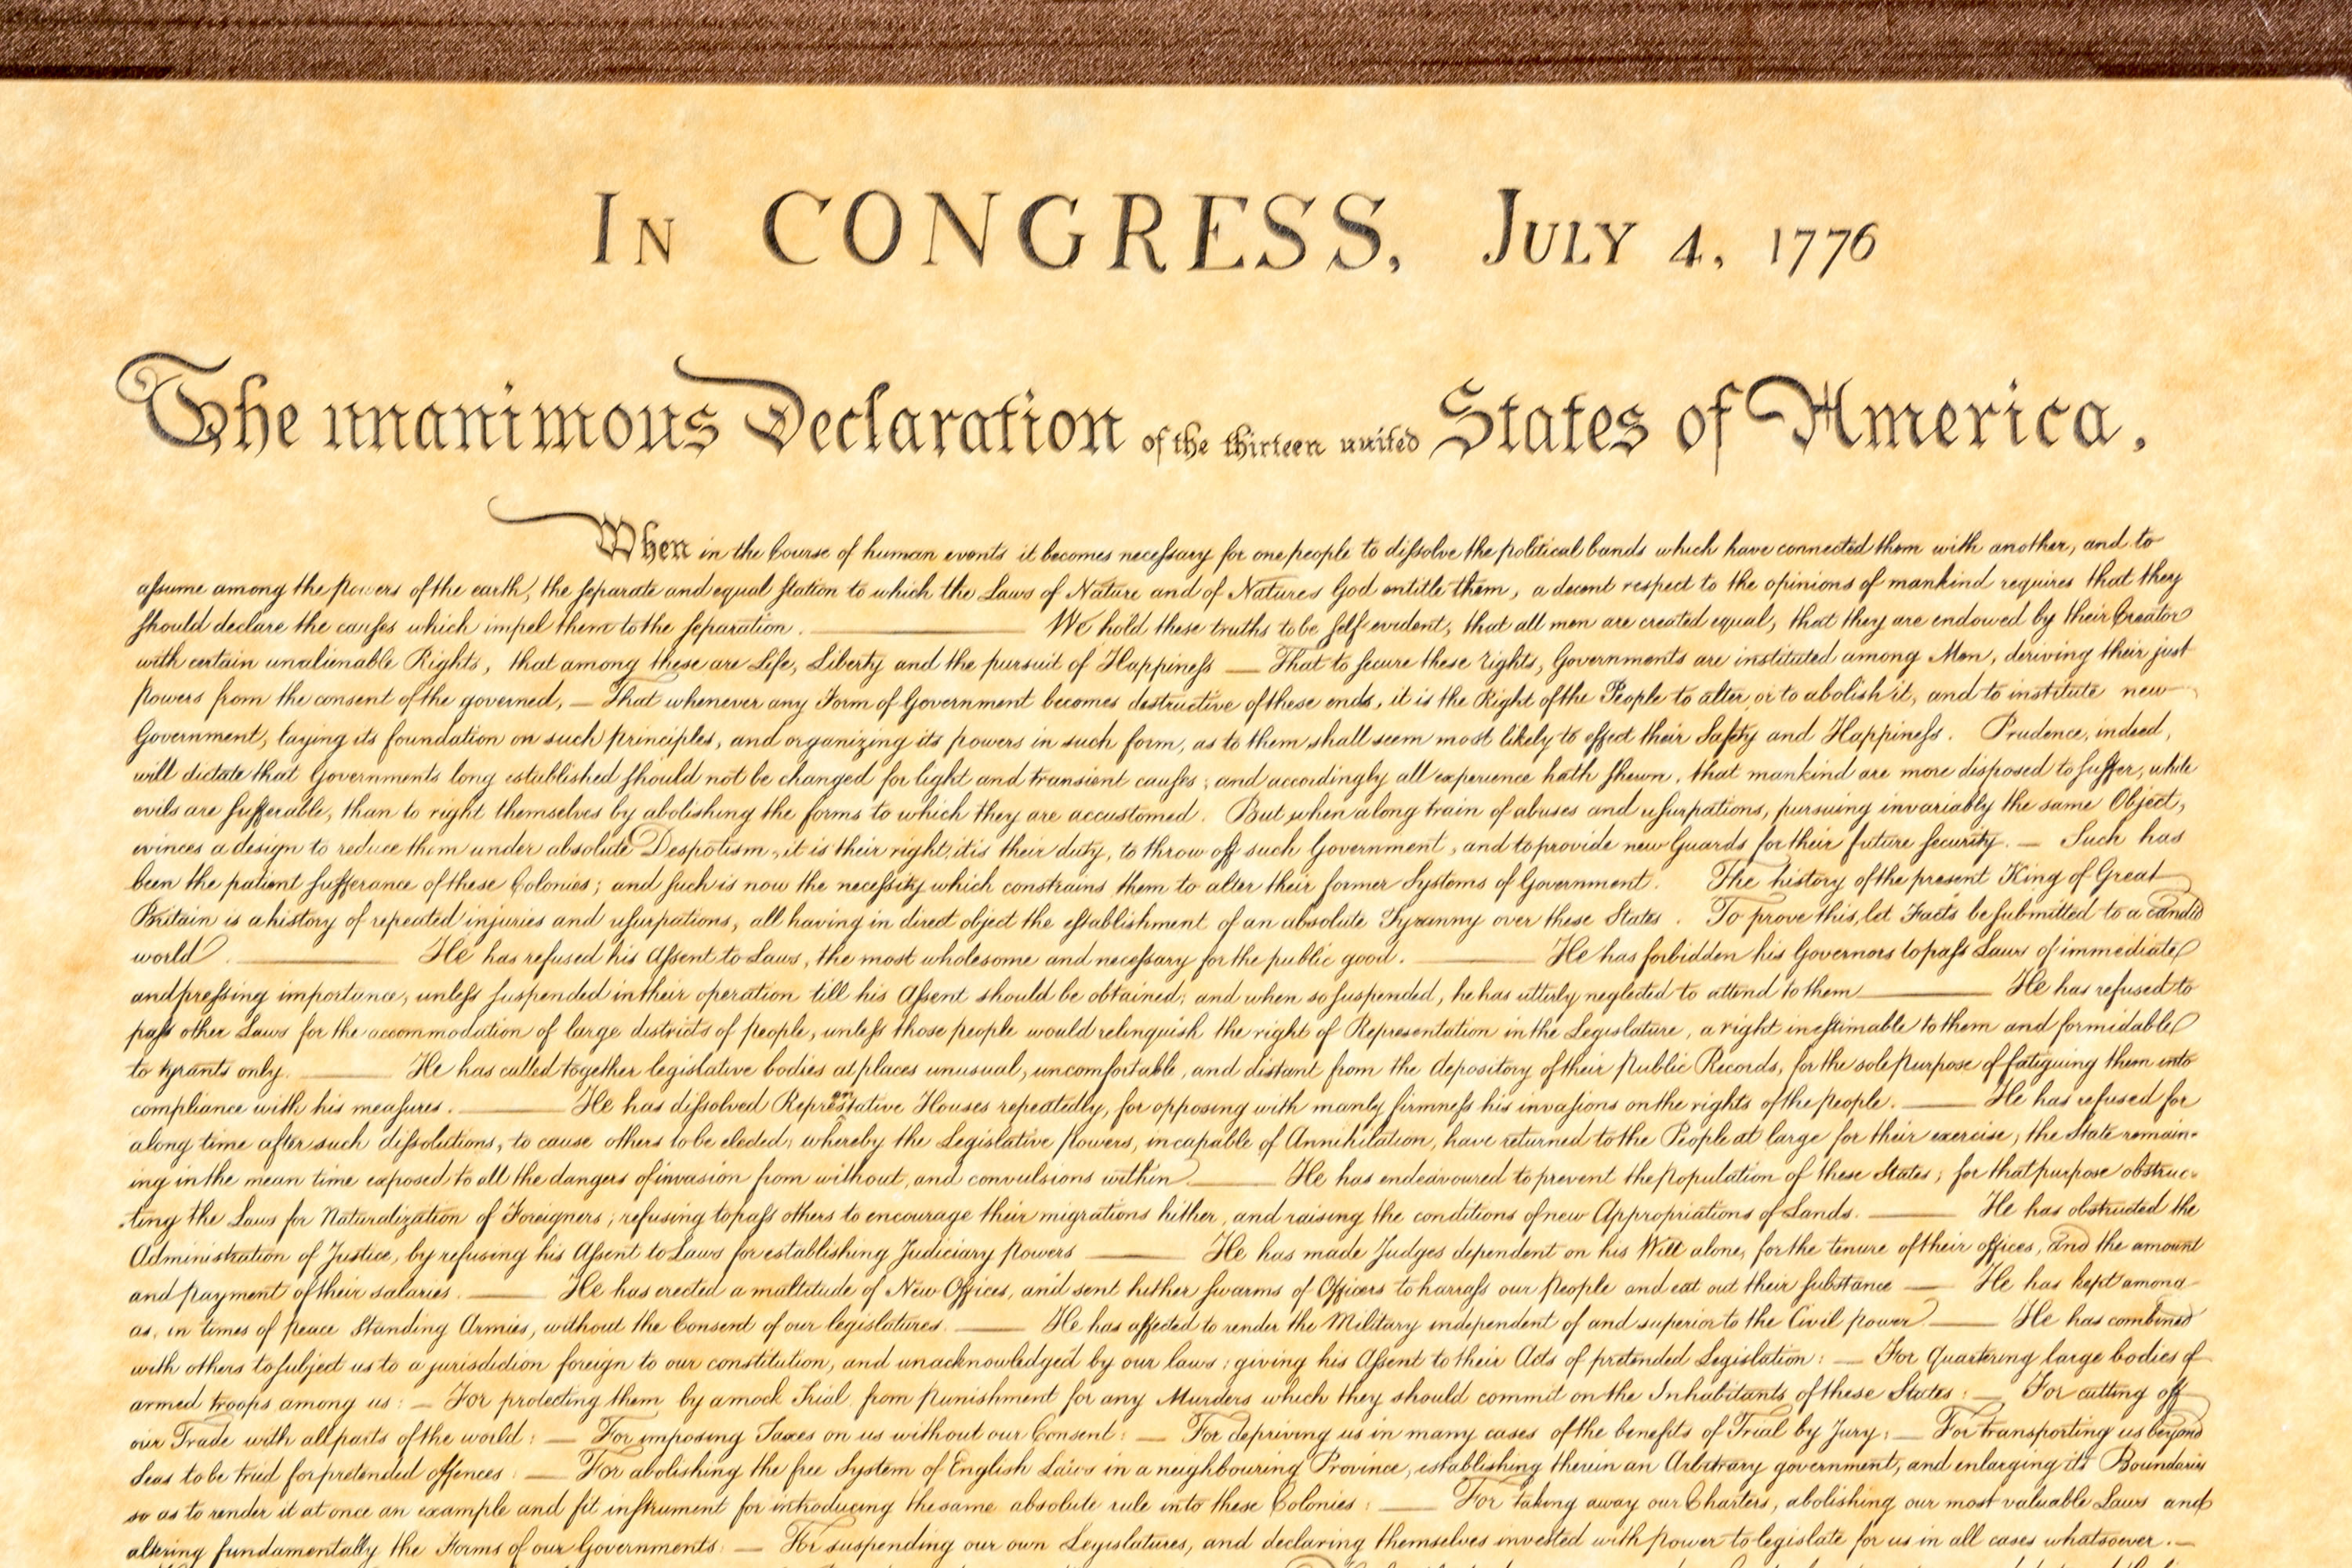 IN CONGRESS, JULY 4, 1776
The unanimous Declaration of the thirteen united States of America,
When in the Course of human events it becomes necessary for one people to dissolve the political bands which have connected them with another, and to
assume among the powers of the earth, the separate and equal station to which the Laws of Nature and of Natures God entitle them, a decent respect to the opinions of mankind requires that they
should declare the causes which impel them to the separation. ——— We hold these truths to be self evident, that all men are created equal, that they are endowed by their Creator
with certain unalienable Rights, that among these are Life, Liberty and the pursuit of Happiness — That to secure these rights, Governments are instituted among Men, deriving their just
powers from the consent of the governed, — That whenever any Form of Government becomes destructive of these ends, it is the Right of the People to alter or to abolish it, and to institute new
Government, laying its foundation on such principles, and organizing its powers in such form, as to them shall seem most likely to effect their Safety and Happiness. Prudence, indeed,
will dictate that Governments long established should not be changed for light and transient causes; and accordingly all experience hath shewn, that mankind are more disposed to suffer, while
evils are sufferable, than to right themselves by abolishing the forms to which they are accustomed. But when a long train of abuses and usurpations, pursuing invariably the same Object,
evinces a design to reduce them under absolute Despotism, it is their right, it is their duty, to throw off such Government, and to provide new Guards for their future security. — Such has
been the patient sufferance of these Colonies; and such is now the necessity which constrains them to alter their former Systems of Government. The history of the present King of Great
Britain is a history of repeated injuries and usurpations, all having in direct object the establishment of an absolute Tyranny over these States. To prove this, let Facts be submitted to a candid
world. ——— He has refused his Assent to Laws, the most wholesome and necessary for the public good. ——— He has forbidden his Governors to pass Laws of immediate
and pressing importance, unless suspended in their operation till his Assent should be obtained; and when so suspended, he has utterly neglected to attend to them ——— He has refused to
pass other Laws for the accommodation of large districts of people, unless those people would relinquish the right of Representation in the Legislature, a right inestimable to them and formidable
to tyrants only. ——— He has called together legislative bodies at places unusual, uncomfortable, and distant from the depository of their Public Records, for the sole purpose of fatiguing them into
compliance with his measures. ——— He has dissolved Representative Houses repeatedly, for opposing with manly firmness his invasions on the rights of the people. ——— He has refused for
a long time after such dissolutions, to cause others to be elected; whereby the Legislative powers, incapable of Annihilation, have returned to the People at large for their exercise; the State remain-
ing in the mean time exposed to all the dangers of invasion from without, and convulsions within. ——— He has endeavoured to prevent the population of these States; for that purpose obstruc-
ting the Laws for Naturalization of Foreigners; refusing to pass others to encourage their migrations hither, and raising the conditions of new Appropriations of Lands. ——— He has obstructed the
Administration of Justice, by refusing his Assent to Laws for establishing Judiciary powers ——— He has made Judges dependent on his Will alone, for the tenure of their offices, and the amount
and payment of their salaries. ——— He has erected a multitude of New Offices, and sent hither swarms of Officers to harrass our people and eat out their substance — He has kept among
us, in times of peace Standing Armies, without the Consent of our legislatures. ——— He has affected to render the Military independent of and superior to the Civil power. ——— He has combined
with others to subject us to a jurisdiction foreign to our constitution, and unacknowledged by our laws; giving his Assent to their Acts of pretended Legislation: — For quartering large bodies of
armed troops among us: — For protecting them by a mock Trial from punishment for any Murders which they should commit on the Inhabitants of these States: — For cutting off
our Trade with all parts of the world: — For imposing Taxes on us without our Consent: — For depriving us in many cases of the benefits of Trial by Jury: — For transporting us beyond
Seas to be tried for pretended offences: — For abolishing the free System of English Laws in a neighbouring Province, establishing therein an Arbitrary government, and enlarging its Boundaries
so as to render it at once an example and fit instrument for introducing the same absolute rule into these Colonies: — For taking away our Charters, abolishing our most valuable Laws and
altering fundamentally the Forms of our Governments: — For suspending our own Legislatures, and declaring themselves invested with power to legislate for us in all cases whatsoever. —